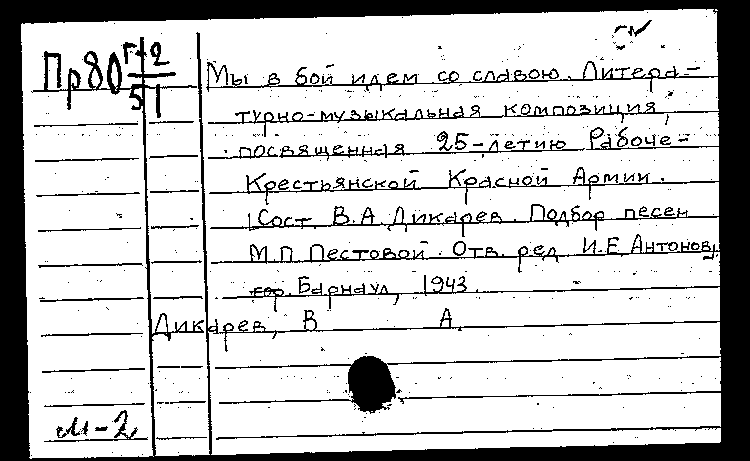 Пр80 Г-2
51
Мы в бой идем со славою. Литера-
турно-музыкальная композиция,
посвященная 25-летию Рабоче-
Крестьянской Красной Армии.
Сост. В.А. Дикарев. Подбор песен
М.П. Пестовой. Отв. ред. И.Е. Антонов,
гор. Барнаул, 1943.
Дикарев, В А.
М-2